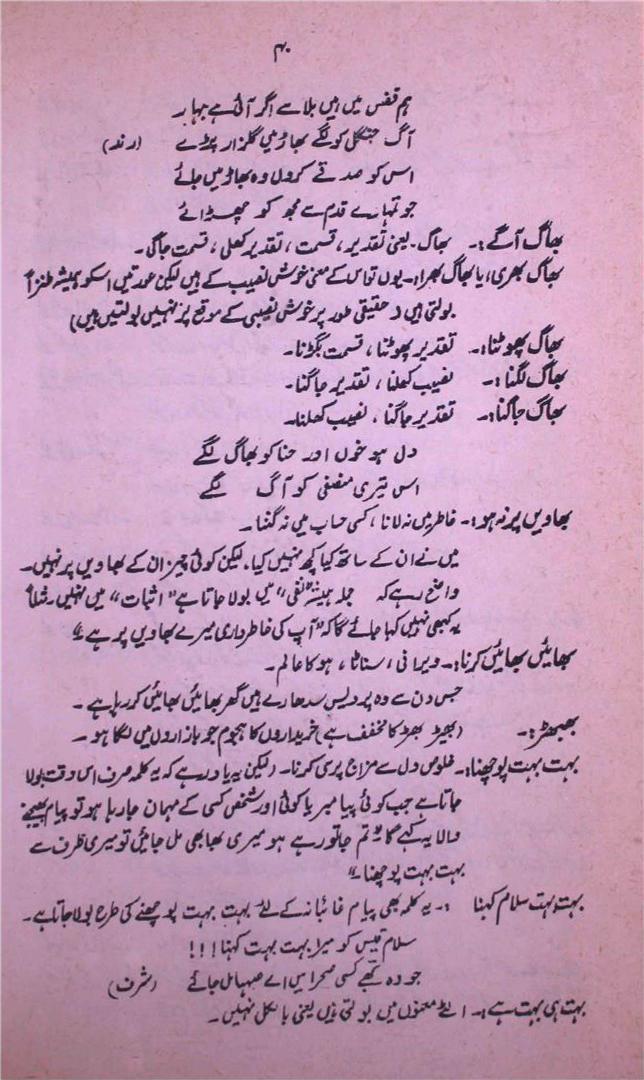 ۴۰
ہم قفس میں ہیں بلا سے اگر آئی ہے بہار
آگ جنگل کو لگے بھاڑ میں گلزار پڑے (رند)
اس کو صدقے کروں وہ بھاڑ میں جائے
جو تمہارے قدم سے مجھ کو چھڑائے
بھاگ آگے:۔ بھاگ۔ یعنی تقدیر، قسمت، تقدیر کھلی، قسمت جاگی۔
بھاگ بھری، یا بھاگ بھرا:۔ یوں تو اس کے معنی خوش نصیب کے ہیں لیکن عورتیں اسکو ہمیشہ طنزاً
بولتی ہیں (حقیقی طور پر خوش نصیبی کے موقع پر نہیں بولتیں ہیں)
بھاگ پھوٹنا:۔ تقدیر پھوٹنا، قسمت بگڑنا۔
بھاگ لگنا:۔ نصیب کھلنا، تقدیر جاگنا۔
بھاگ جاگنا:۔ تقدیر جاگنا، نصیب کھلنا۔
دل ہو خوں اور حنا کو بھاگ لگے
اس تیری منصفی کو آگ لگے
بھاویں پر نہ ہو:۔ خاطر میں نہ لانا، کسی حساب میں نہ گننا۔
میں نے ان کے ساتھ کیا کچھ نہیں کیا۔ لیکن کوئی چیز ان کے بھاویں پر نہیں۔
واضع رہے کہ جملہ ہمیشہ "نفی" میں بولا جاتا ہے "اثبات" میں نہیں۔ مثلاً
یہ کبھی نہیں کہا جائے گا کہ "آپ کی خاطر داری میرے بھاویں پر ہے"
بھائیں بھائیں کرنا:۔ ویرانی، سناٹا، ہو کا عالم۔
جس دن سے وہ پردیس سدھارے ہیں گھر بھائیں بھائیں کر رہا ہے۔
بھبھڑ:۔ (بھیڑ بھڑ کا مخفف ہے) خریداروں کا ہجوم جو بازاروں میں لگا ہو۔
بہت بہت پوچھنا:۔ خلوص دل سے مزاج پرسی کرنا۔ (لیکن یہ یاد رہے کہ یہ کلمہ صرف اس وقت بولا
جاتا ہے جب کوئی پیامبر یا کوئی اور شخص کسی کے مہمان جا رہا ہو تو پیام بھیجنے
والا یہ کہے گا "تم جا تو رہے ہو میری بھابھی مل جائیں تو میری طرف سے
بہت بہت پوچھنا"
بہت بہت سلام کہنا :۔ یہ کلمہ بھی پیام غائبانہ کے لئے بہت بہت پوچھنے کی طرح بولا جاتا ہے۔
سلام قیس کو میرا بہت بہت کہنا!!!
جو وہ تجھے کسی صحرا میں اے صبا مل جائے (شرف)
بہت ہی بہت ہے:۔ الٹے معنوں میں بولتی ہیں یعنی بالکل نہیں۔